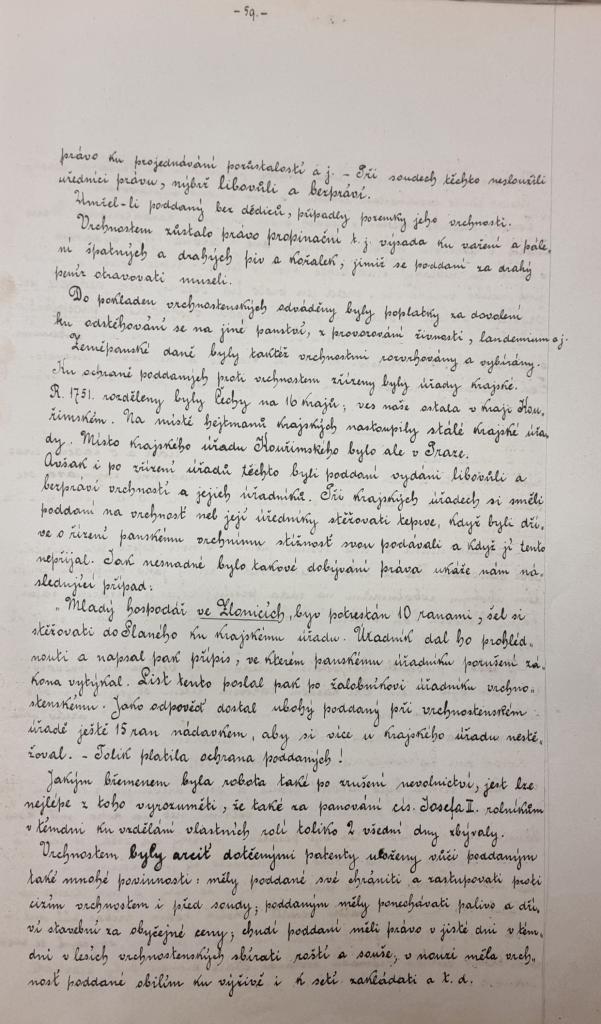 - 59.-
právo ku projednávání pozůstalostí a j. - Při soudech těchto nesloužili
úředníci právu, nýbrž libovůli a bezpráví.
Umřel-li poddaný bez dědiců, připadly pozemky jeho vrchnosti.
Vrchnostem zůstalo právo propinační t. j. výsada ku vaření a pále-
ní špatných a drahých piv a kořalek, jimiž se poddaní za drahý
peníz otravovati museli.
Do pokladen vrchnostenských odváděny byly poplatky za dovolení
ku odstěhování se na jiné panství, z provozování živností, landemium aj.
Zeměpanské daně byly taktéž vrchnostmi rozvrhovány a vybírány.
Ku ochraně poddaných proti vrchnostem zřízeny byly úřady krajské.
R. 1751. rozděleny byly Čechy na 16 krajů; ves naše ostala v kraji Kou-
římském. Na místě hejtmanů krajských nastoupily stálé krajské úřa-
dy. Místo krajského úřadu Kouřimského bylo ale v Praze.
Avšak i po zřízení úřadů těchto byli poddaní vydáni libovůli a
bezpráví vrchností a jejich úřadníků. Při krajských úřadech si směli
poddaní na vrchnosť neb její úředníky stěžovati teprve, když byli dří-
ve o řízení panskému vrchnímu stížnosť svou podávali a když jí tento
nepřijal. Jak nesnadné bylo takové dobývání práva ukáže nám ná-
sledující případ:
"Mladý hospodář ve Zlonicích, byv potrestán 10 ranami, šel si
stěžovati do Slaného ku krajskému úřadu. Úřadník dal ho prohléd-
nouti a napsal pak přípis, ve kterém panskému úřadníku porušení zá-
kona vytýkal. List tento poslal pak po žalobníkovi úřadníku vrchno-
stenskému. Jako odpověď dostal ubohý poddaný při vrchnostenském
úřadě ještě 15 ran nádavkem, aby si více u krajského úřadu nestě-
žoval. - Tolik platila ochrana poddaných!
Jakým břemenem byla robota také po zrušení nevolnictví, jest lze
nejlépe z toho vyrozuměti, že také za panování cís. Josefa II. rolníkům
v témdni ku vzdělání vlastních rolí toliko 2 všední dny zbývaly.
Vrchnostem byly arciť dotčenými patenty uloženy vůči poddaným
také mnohé povinnosti: měly poddané své chrániti a zastupovati proti
cizím vrchnostem i před soudy; poddaným měly ponechávati palivo a dří-
ví stavební za obyčejné ceny; chudí poddaní měli právo v jisté dni v tém-
dni v lesích vrchnostenských sbírati roští a souše; v nouzi měla vrch-
nosť poddané obilím ku výživě i k setí zakládati a t. d.